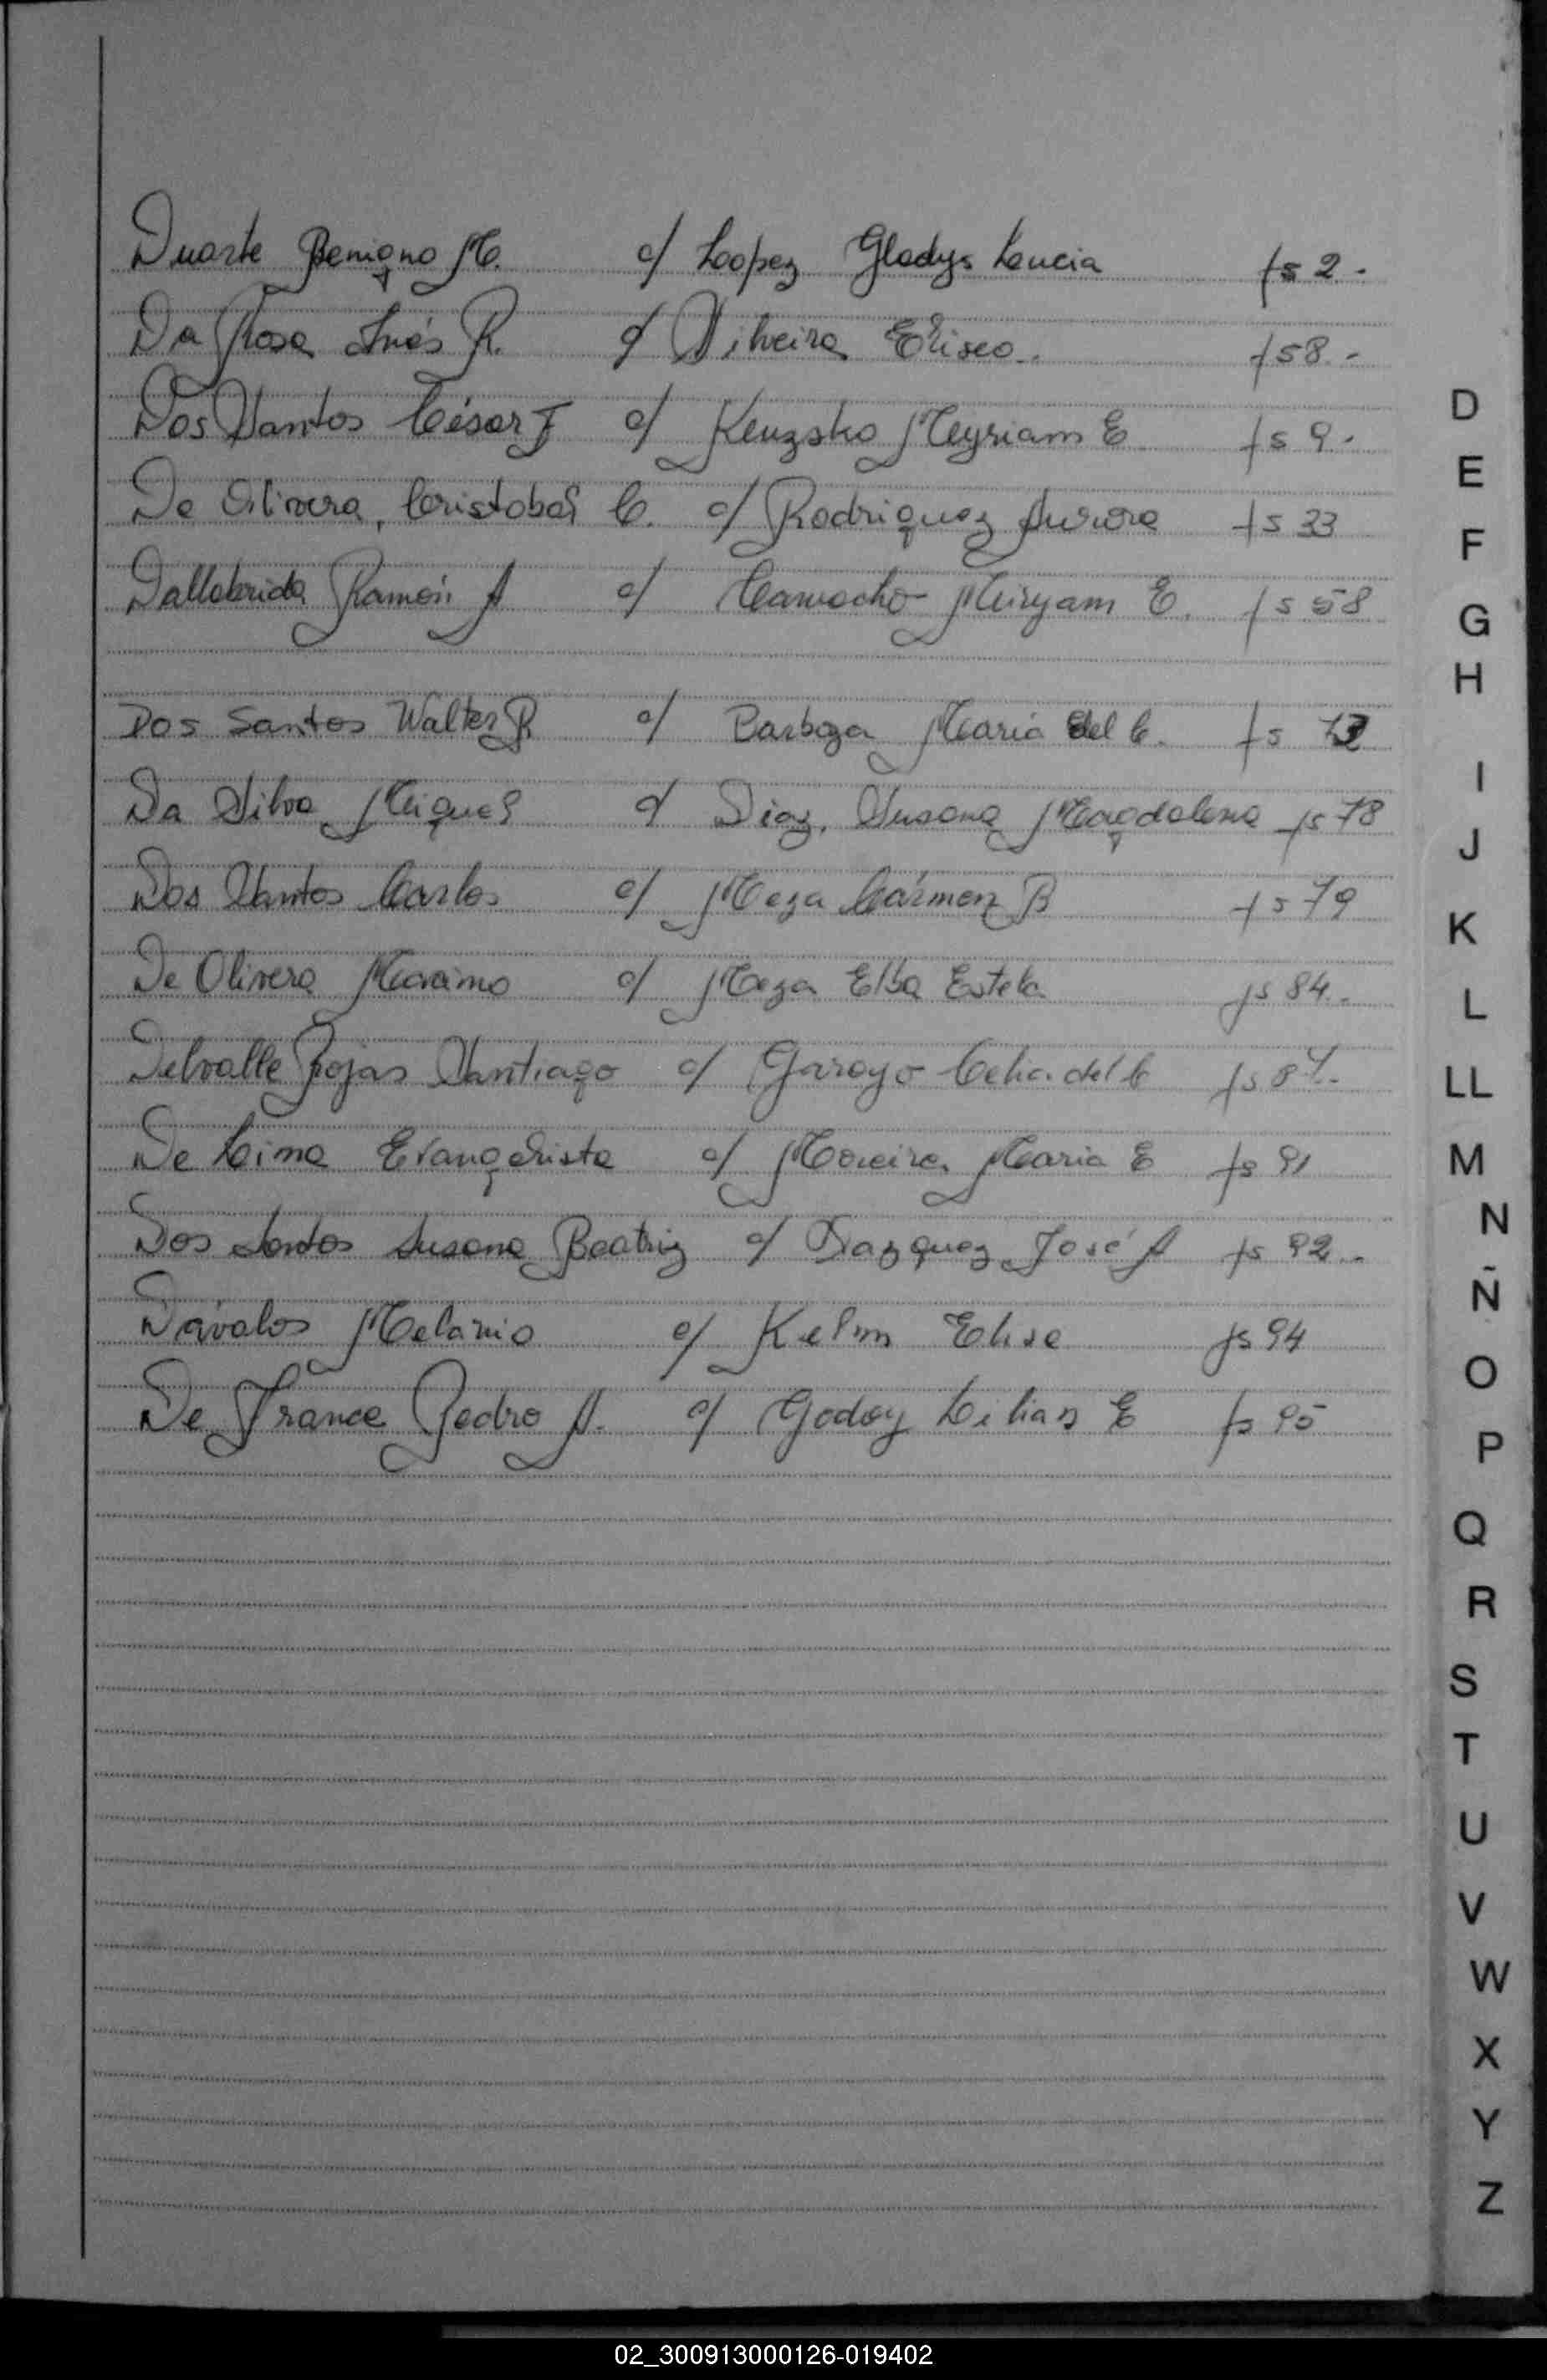 Duarte Benigno M. c/ Lopez Gladys Lucia fs 2.-
Da Rosa Inés R. c/ Silveira Eliseo. fs 8.-
Dos Santos César F c/ Kenzsko Meyriam E fs 9.-
De Olivera, Cristobal C. c/ Rodriguez Aurora fs 33
Dallabrida Ramón A c/ Camacho Miryam E. fs 58
Dos Santos Walter R c/ Barboza Maria del C. fs
Da Silva Miguel c/ Diaz, Susana Magdalena fs 78
Dos Santos Carlos c/ Meza Cármen B fs 79
De Olivera Maximo c/ Meza Elba Estela fs 84.-
Delvalle Rojas Santiago c/ Garayo Celia del C fs 87.-
De Lima Evangelista c/ Moreira Maria E fs 91
Dos Santos Susana Beatriz c/ Bazquez José A fs 92.-
Dávalos Melanio c/ Kelm Elisa fs 94
De Franca Pedro A. c/ Godoy Lilian E fs 95
D
E
F
G
H
I
J
K
L
LL
M
N
Ñ
O
P
Q
R
S
T
U
V
W
X
Y
Z
02_300913000126-019402